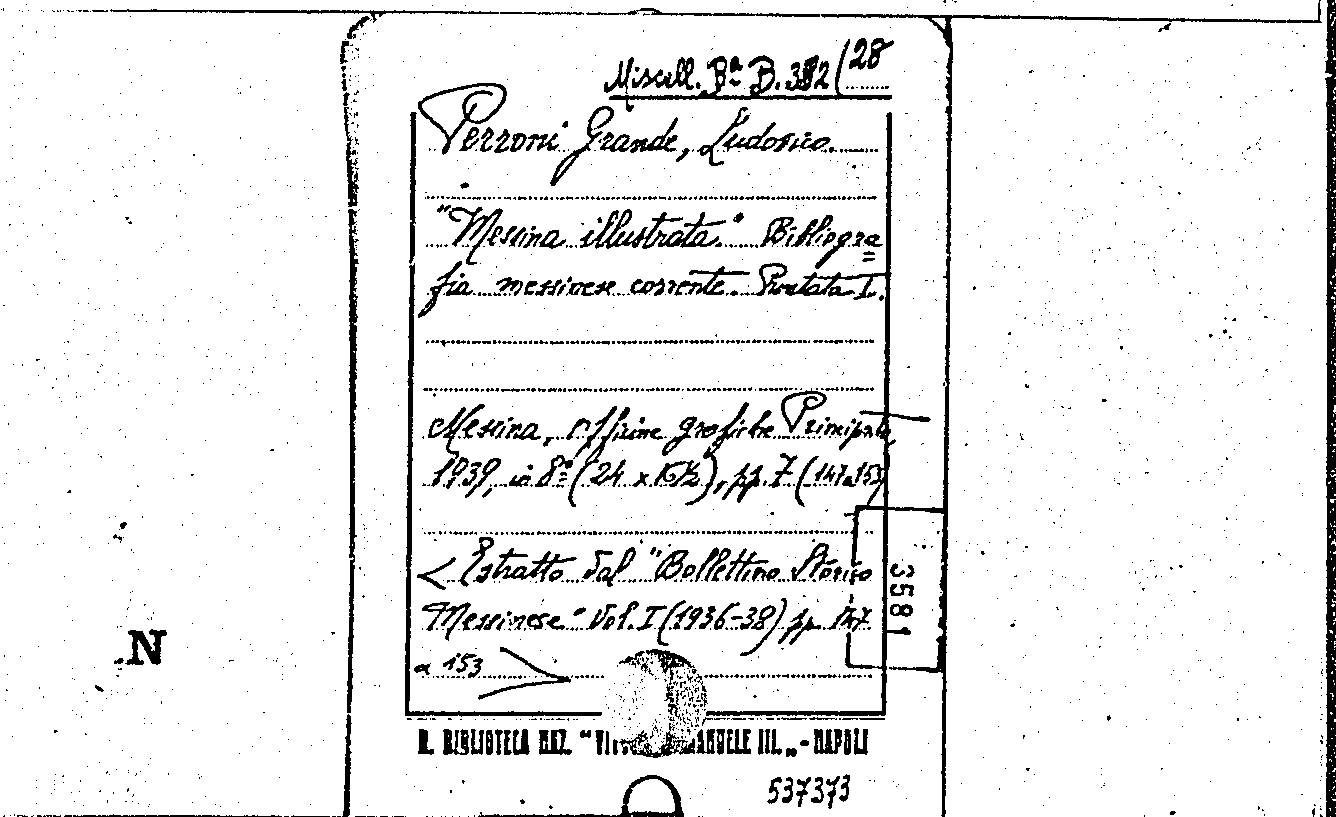 Miscell. Bª B. 382/28
Perroni Grande, Ludovico.
"Messina illustrata." Bibliogra=
fia messinese corrente. Puntata I.
Messina, officine grafiche Principato,
1939, in 8º (24 x 16½), pp. 7 (147 a 153)
< Estratto dal "Bollettino Storico
Messinese" Vol. I (1936-38) pp 147
a 153 >
3581
N
R. BIBLIOTECA NAZ. "VITT ANUELE III. „ - NAPOLI
537373